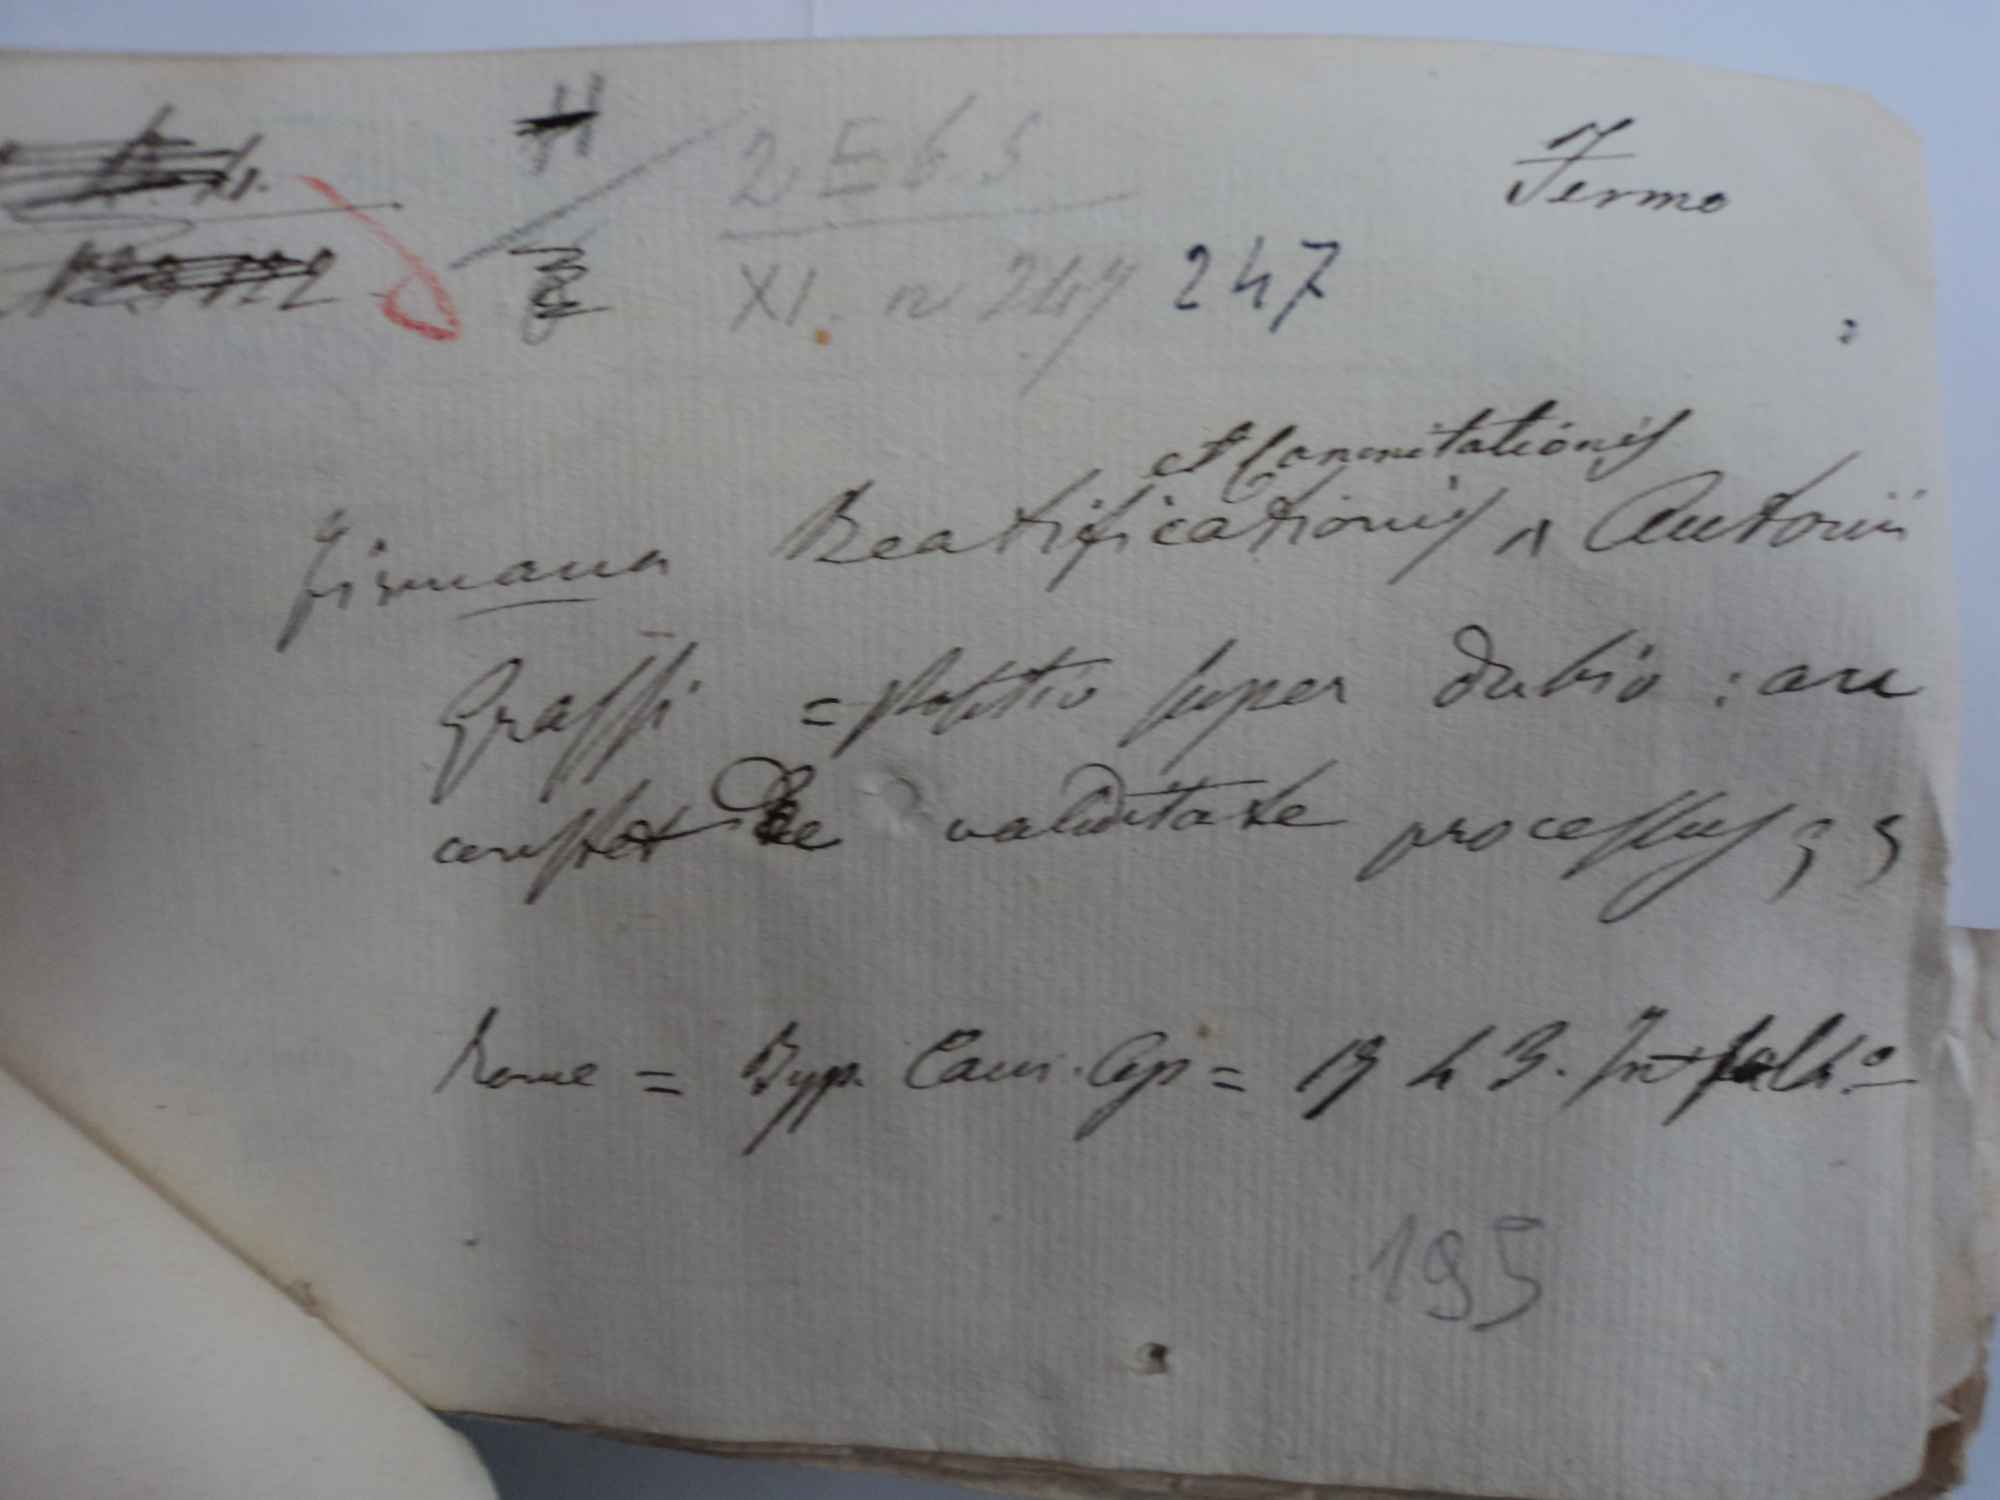 Fermo
2 E b 5
XI. n 247 247
et Canonitationis
firmana Beatificationis ^ Antonii
Grassi = Positio super dubio : an
constet de validitate processus
Rome = Typ. Cam. Ap = 1743. In fol.o
195